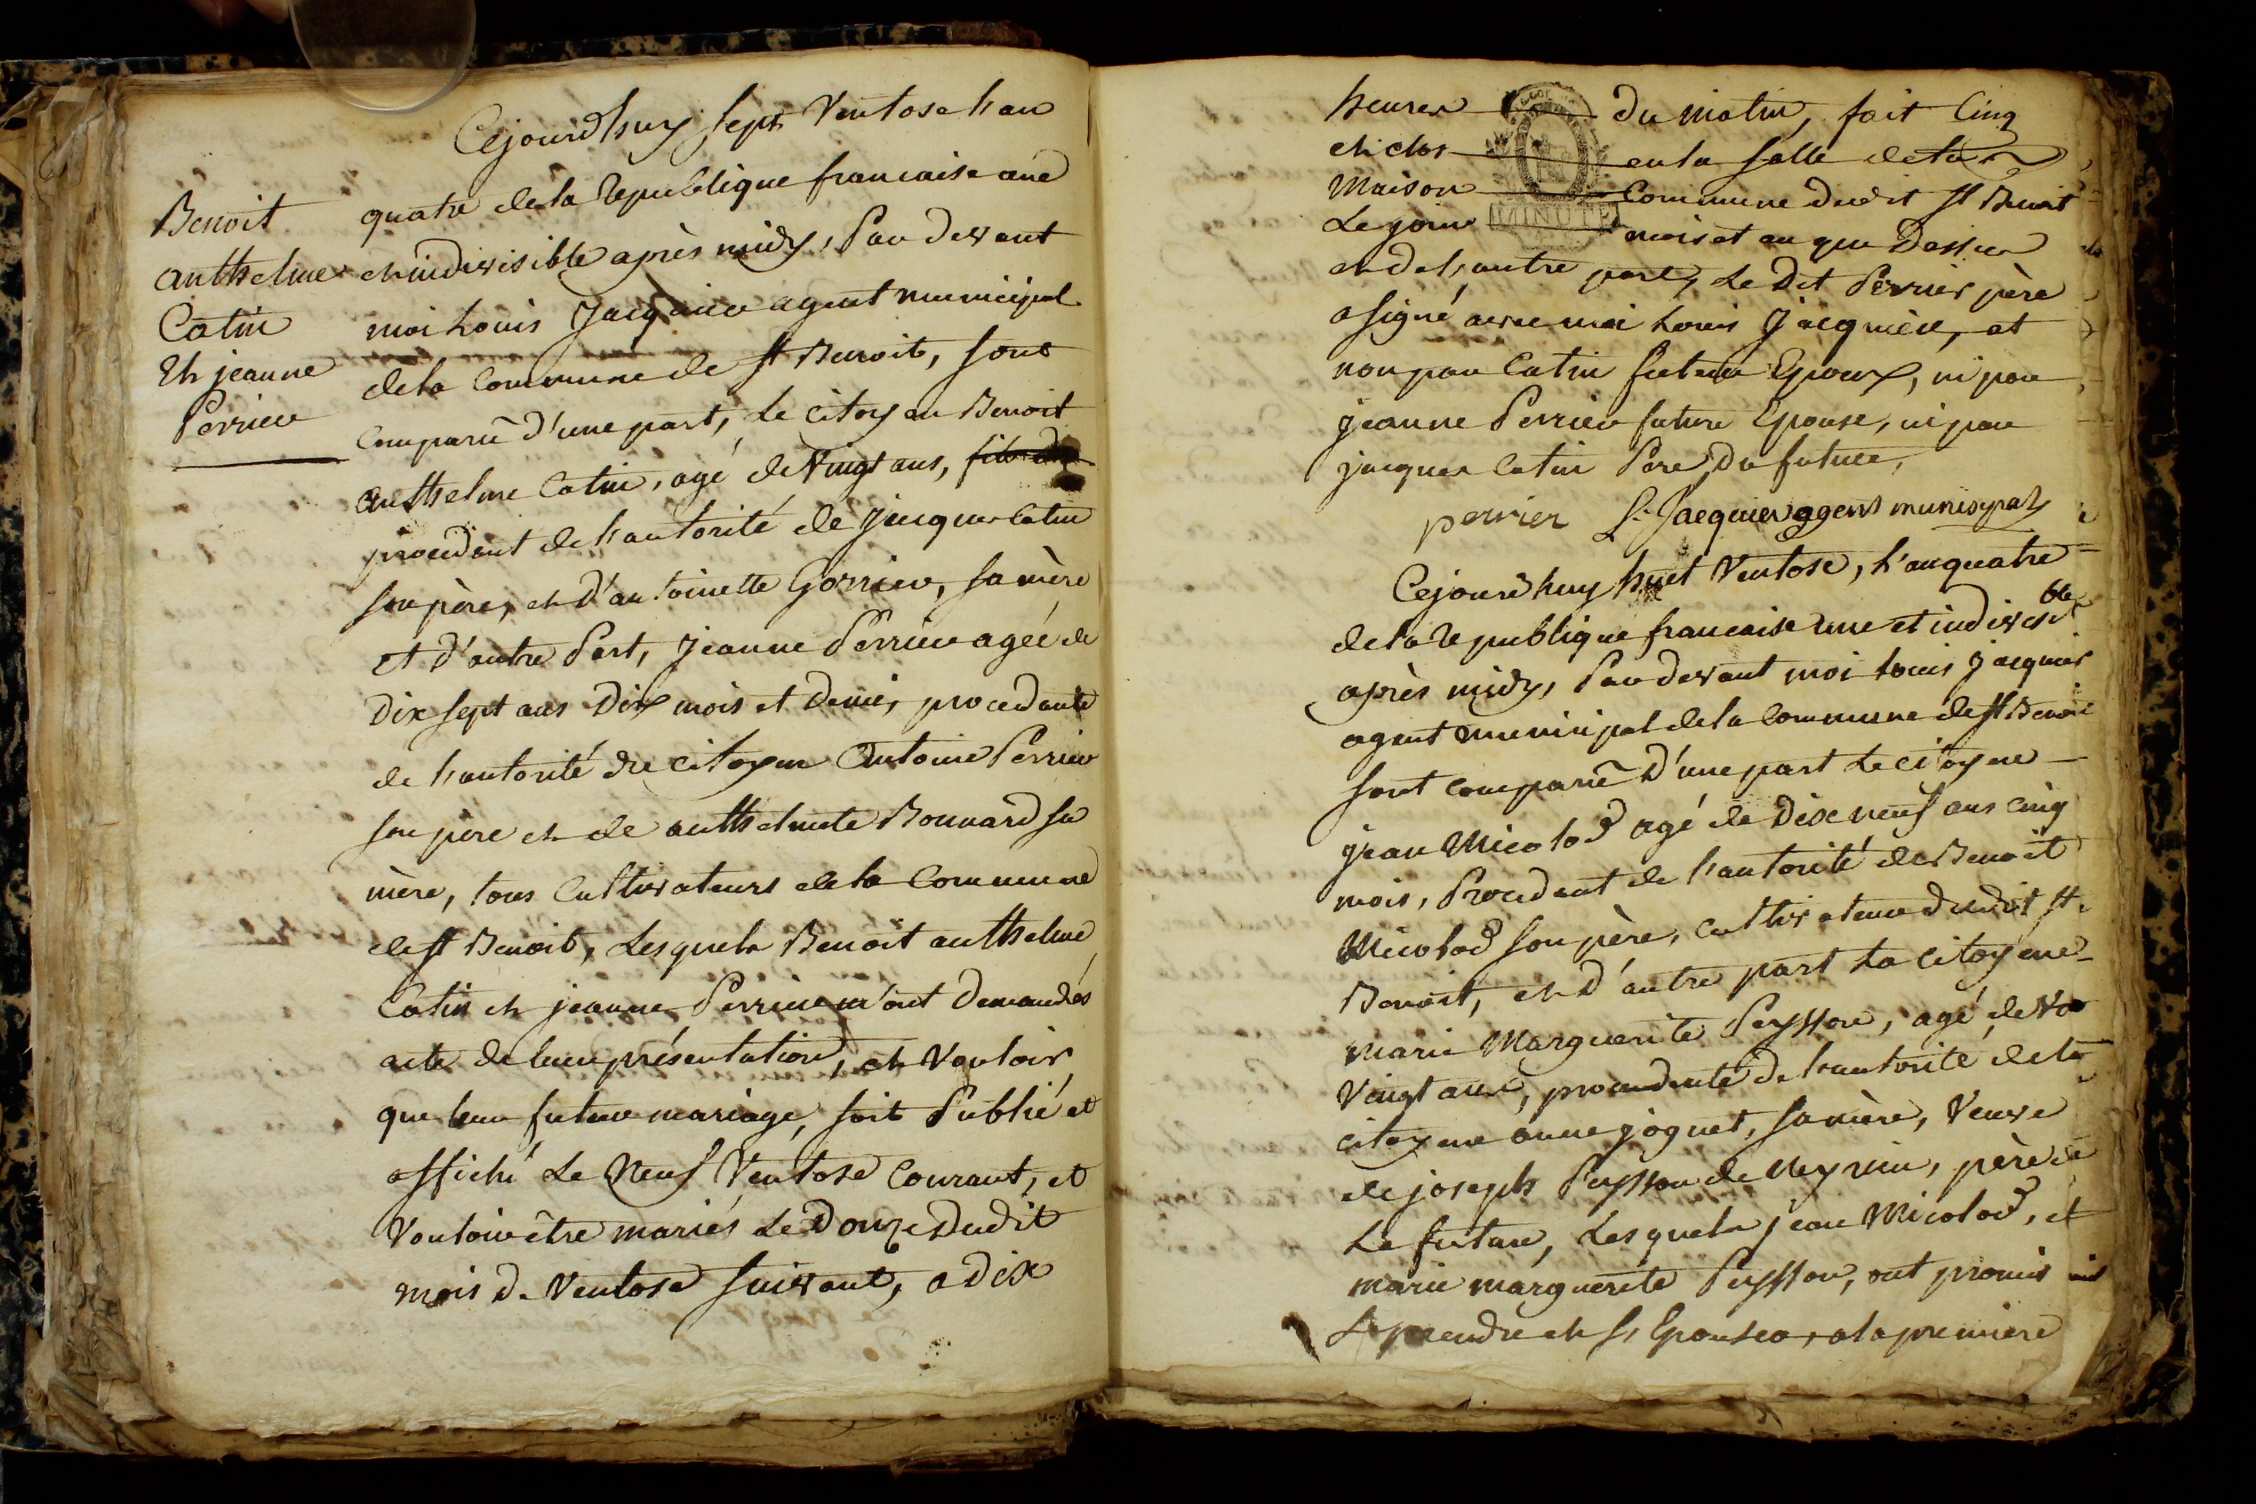 Cejourdhuy sept Ventose l'an
Benoit
Anthelme
Catin
Et jeanne
Perrier
quatre de la republique francaise une
et indivisible après midy, Par devant
moi Louis Jacquier agent municipal
de la Commune de St Benoit, sont
comparu d'une part, Le citoyen Benoit
Anthelme Catin, agé de Vingt ans, fils de
procedant de l'autorité de Jacques Catin
son père, et d'antoinette Gorrier, sa mère
et d'autre Part, Jeanne Perrier agée de
Dix sept ans Dix mois et demie, procedante
de l'autorité du citoyen Antoine Perrier
son père et de anthelmete Bonnard sa
mère, tous Cultivateurs de la Commune
de St Benoit, Lesquels Benoit anthelme
Catin et jeanne Perrier m'ont demandés
acte de leur présentation, et Vouloir
que leur future mariage, soit Publié et
affiché Le Neuf Ventose Courant, et
Vouloir être mariés Le Douze Dudit
mois de Ventose suivant, a dix
heures du matin, fait Cinq
et clos en la salle de la
Maison Commune dudit St Benoit
Le jour mois et an que Dessus
MINUTE
et de l'autre part, Le Dit Perrier père
a signé avec moi Louis Jacquier, et
non par Catin futur Epoux, ni par
jeanne Perrier future Epouse, ni par
jacques Catin Pere du future,
perrier L. Jacquier agent municipal
Cejourdhuy huet Ventose, l'an quatre
de la republique francaise une et indivisible
après midy, Par devant moi Louis Jacquier
agent municipal de la Commune de St Benoit
sont comparu D'une part Le citoyene
jean Micolod agé de Dix neuf ans cinq
mois, Procedent de l'autorité de Benoit
Micolod son père, cultivateur dudit St
Benoit, et D'autre part La citoyene
marie Marguerite Peysson, agé de
Vingt ans, procedente de l'autorité de la
citoyene anne jognet, sa mère, Veuve
de joseph Peysson de Meyrin, père de
La future, Lesquels jean Micolod, et
marie marguerite Peysson, ont promis
se prendre et s'Epouser, a la première